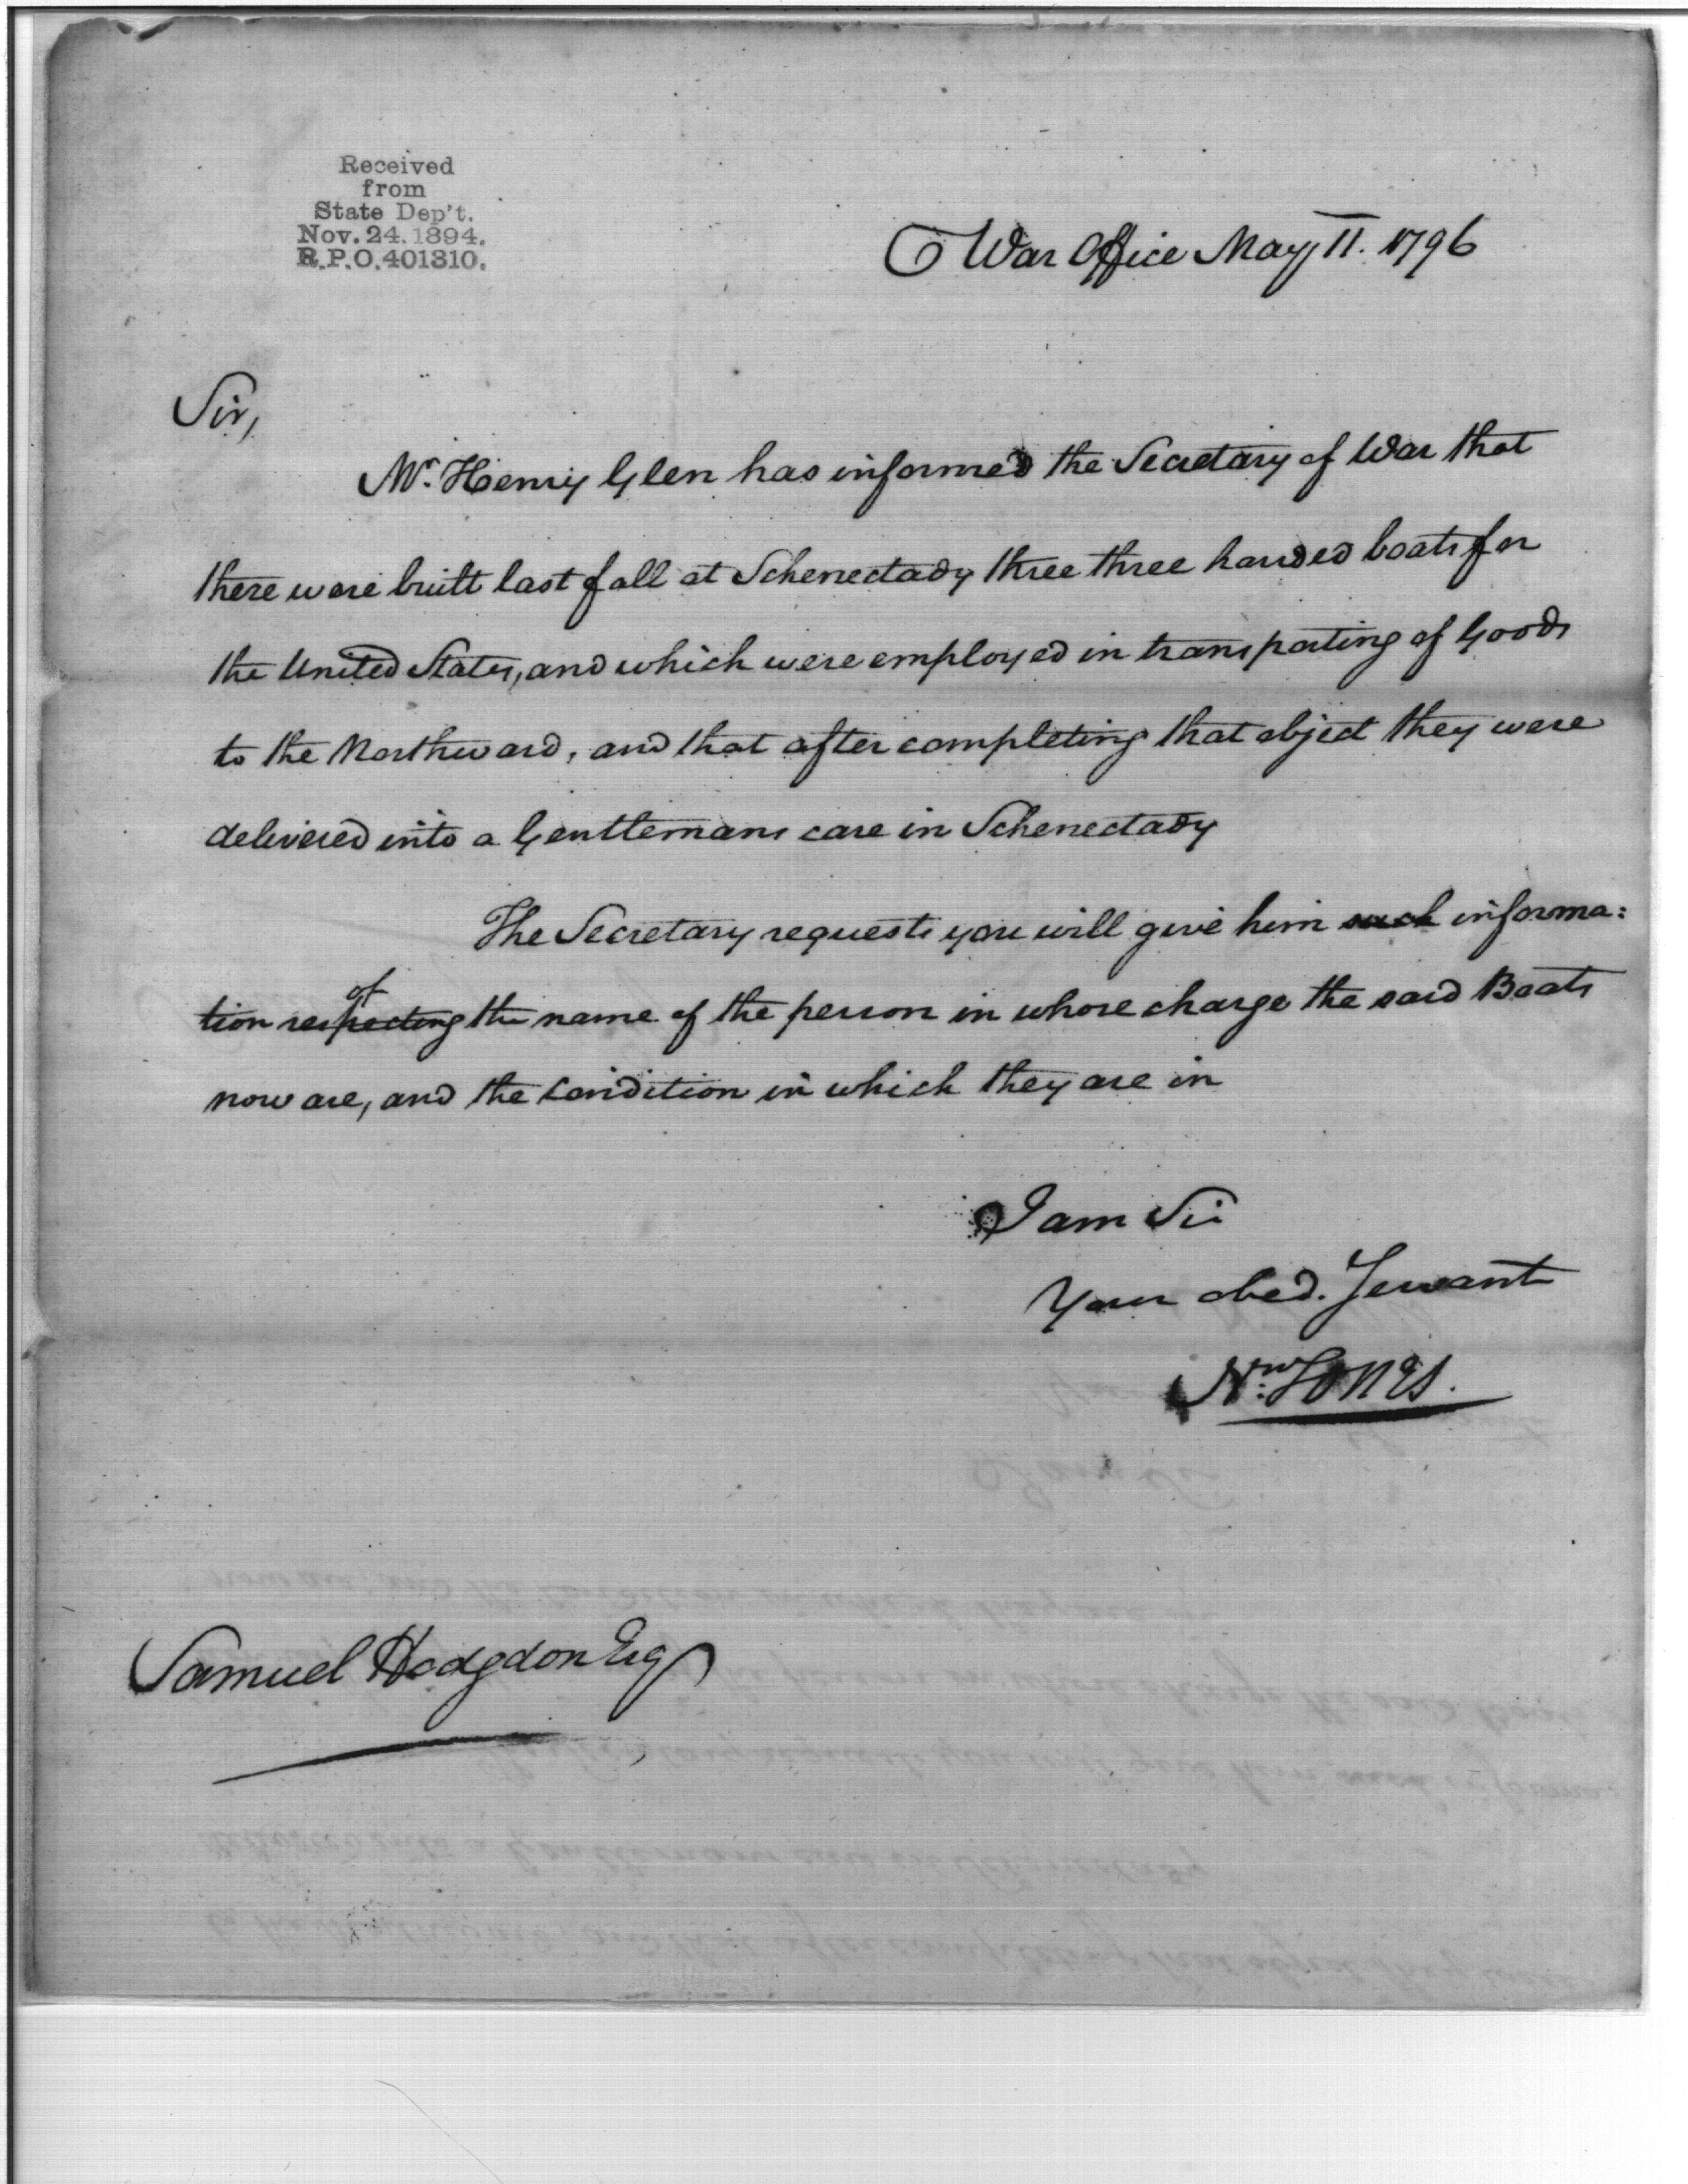 Received
from
State Dep't.
Nov. 24. 1894.
R.P.O. 401310.
War Office May 11. 1796
Sir,
Mr. Henry Glen has informed the Secretary of War that
there were built last fall at Schenectady three three handed boats for
the United States, and which were employed in transporting of Goods
to the Northward, and that after completing that object they were
delivered into a Gentlemans care in Schenectady
The Secretary requests you will give him such informa:
of
tion respecting the name of the person in whose charge the said Boats
now are, and the Condition in which they are in
I am Sir
Your obed. Servant
Nw: Jones.
Samuel Hodgdon Esq